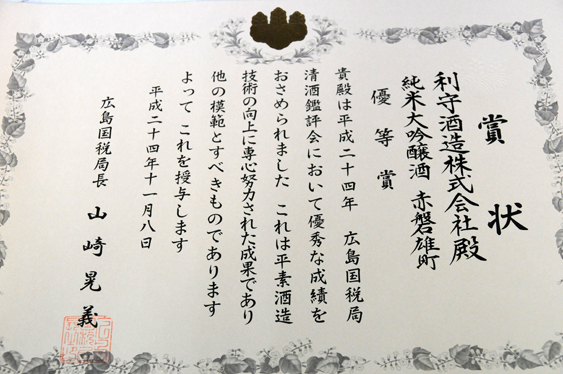 賞状
利守酒造株式会社殿
純米大吟醸酒 赤磐雄町
優等賞
貴殿は平成二十四年 広島国税局
清酒鑑評会において優秀な成績を
おさめられました これは平素酒造
技術の向上に専心努力された成果であり
他の模範とすべきものであります
よって これを授与します
平成二十四年十一月八日
広島国税局長 山崎晃義